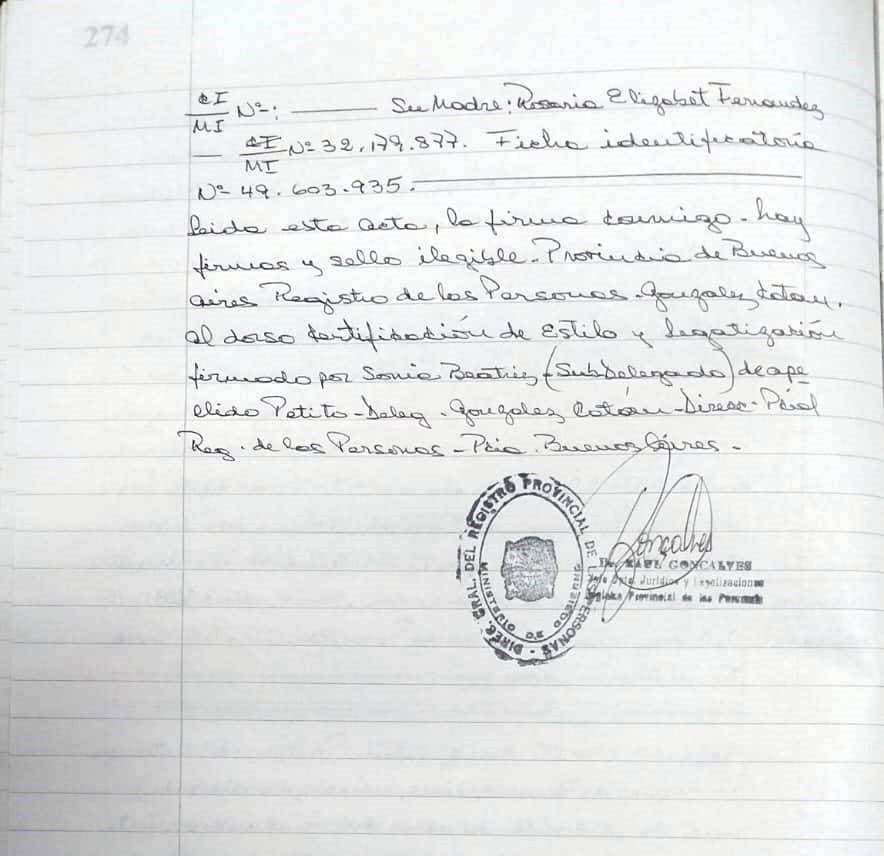 274
CI
MI Nº: ——— Su Madre: Rosario Elizabet Fernandez
— CI
MI Nº 32.179.877. Ficha identificatoria
Nº 49.603.935. ———
leida esta acta, la firma conmigo. hay
firmas y sello ilegible. Provincia de Buenos
Aires Registro de las Personas. Gonzalez Catan.
Al dorso Certificación de Estilo y legalización
firmado por Sonia Beatriz (SubDelegada) de ape
llido Petito - Deleg. Gonzalez Catán - Direcc. Pcial
Reg. de las Personas - Pcia. Buenos Aires.
DIREC. GRAL. DEL REGISTRO PROVINCIAL DE LAS PERSONAS
MINISTERIO DE GOBIERNO
Gonçalves
Dr. RAUL GONCALVES
Jefe Dpto. Jurídico y Legalizaciones
Registro Provincial de las Personas